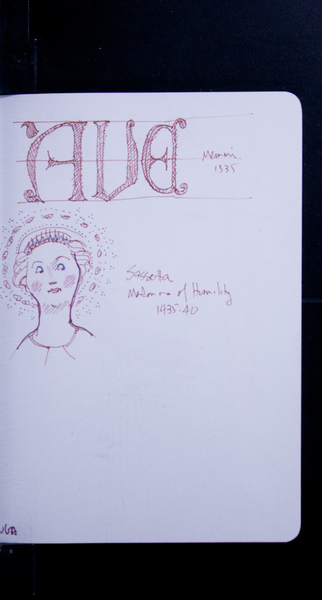 AVE
1335
Sassetta
Madonna of Humility
1435-40